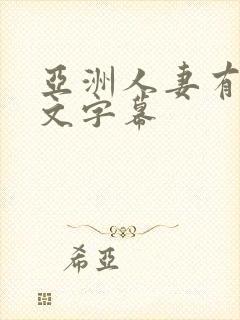 亞洲人妻有
文字幕
希亞